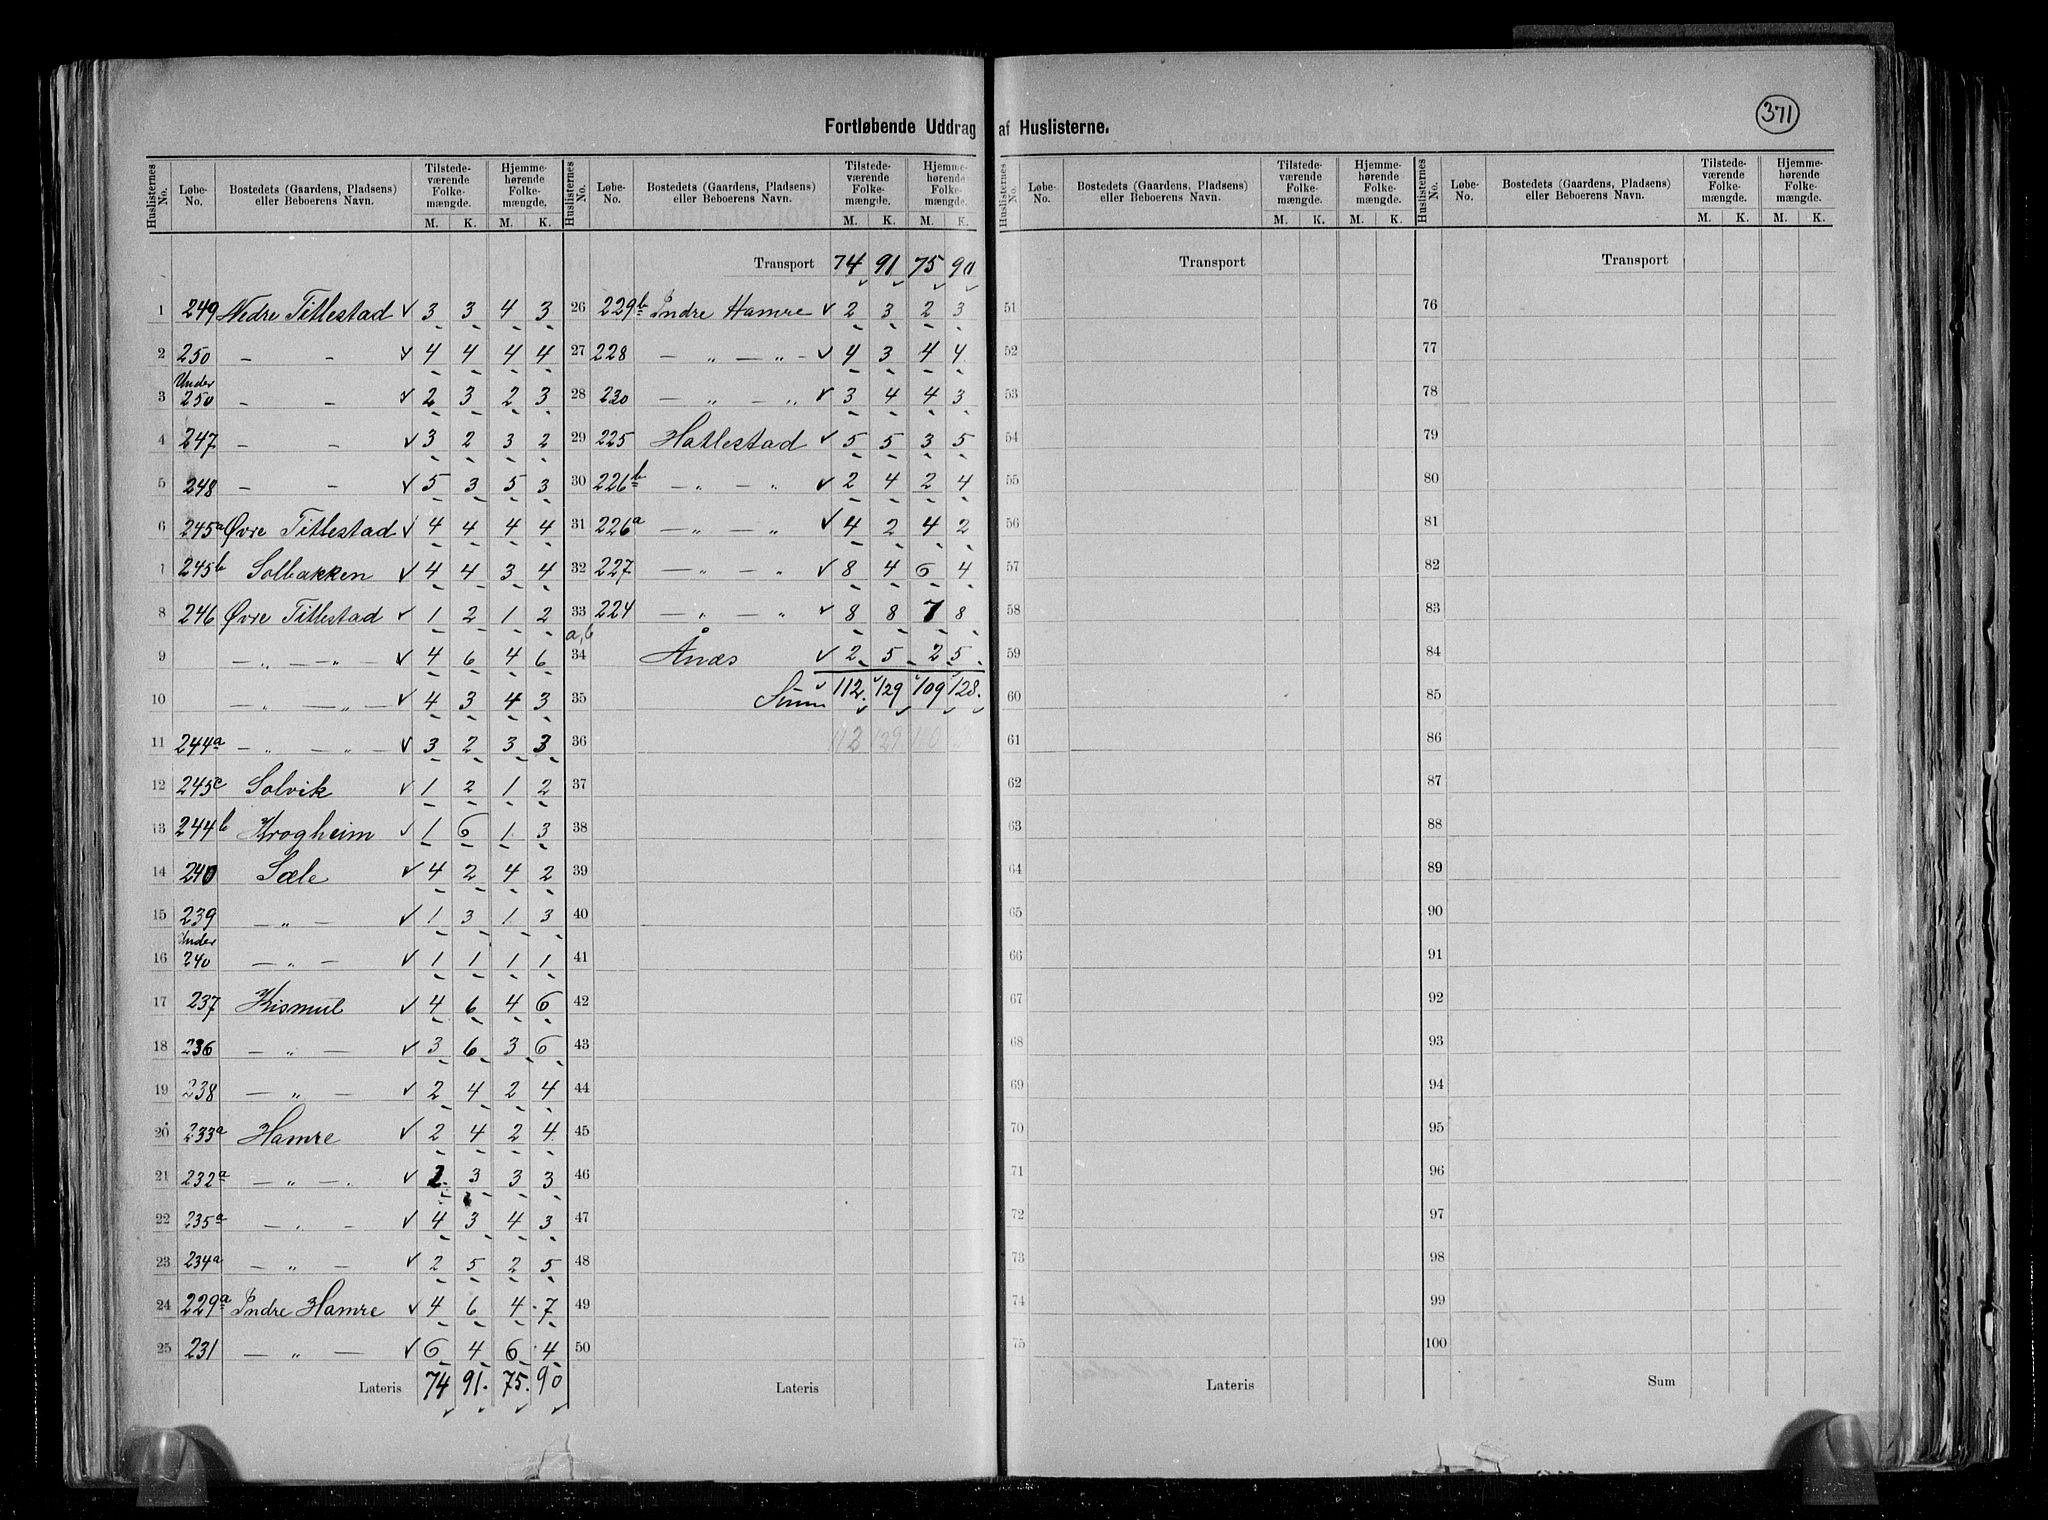 371
Fortløbende Uddrag af Huslisterne.
Huslisternes No. Løbe-No. Bostedets (Gaardens, Pladsens) eller Beboerens Navn. Tilstedeværende Folkemængde. M. K. Hjemmehørende Folkemængde. M. K.
1 249 Nedre Tittestad ✓ 3 3 4 3
2 250 - - ✓ 4 4 4 4
3 Under 250 - - ✓ 2 3 2 3
4 247 - - ✓ 3 2 3 2
5 248 - - ✓ 5 3 5 3
6 245a Øvre Tittestad ✓ 4 4 4 4
7 245b Solbakken ✓ 4 4 3 4
8 246 Øvre Tittestad ✓ 1 2 1 2
9 — „ — „ — ✓ 4 6 4 6
10 — „ — „ — ✓ 4 3 4 3
11 244a — „ — „ — ✓ 3 2 3 3
12 245c Solvik ✓ 1 2 1 2
13 244b Krogheim ✓ 1 6 1 3
14 240 Sæle ✓ 4 2 4 2
15 239 — „ — ✓ 1 3 1 3
16 Under 240 — „ — ✓ 1 1 1 1
17 237 Kismul ✓ 4 6 4 6
18 236 — „ — ✓ 3 6 3 6
19 238 — „ — ✓ 2 4 2 4
20 233a Hamre ✓ 2 4 2 4
21 232a — „ — ✓ 2 3 3 3
22 235a — „ — ✓ 4 3 4 3
23 234a — „ — ✓ 2 5 2 5
24 229a Indre Hamre ✓ 4 6 4 7
25 231 — „ — ✓ 6 4 6 4
Lateris 74 91 75 90
Huslisternes No. Løbe-No. Bostedets (Gaardens, Pladsens) eller Beboerens Navn. Tilstedeværende Folkemængde. M. K. Hjemmehørende Folkemængde. M. K.
Transport 74 91 75 90
26 229b Indre Hamre ✓ 2 3 2 3
27 228 — „ — „ — ✓ 4 3 4 4
28 230 — „ — „ ✓ 3 4 4 3
29 225 Hatlestad ✓ 5 5 3 5
30 226b — „ — „ ✓ 2 4 2 4
31 226a — „ — „ ✓ 4 2 4 2
32 227 — „ — „ ✓ 8 4 6 4
33 224 — „ — „ ✓ 8 8 7 8
a,b
34 Ånæs ✓ 2 5 2 5
35 Sum 112 129 109 128
36 112 129
37
38
39
40
41
42
43
44
45
46
47
48
49
50
Lateris
Huslisternes No. Løbe-No. Bostedets (Gaardens, Pladsens) eller Beboerens Navn. Tilstedeværende Folkemængde. M. K. Hjemmehørende Folkemængde. M. K.
Transport
51
52
53
54
55
56
57
58
59
60
61
62
63
64
65
66
67
68
69
70
71
72
73
74
75
Lateris
Huslisternes No. Løbe-No. Bostedets (Gaardens, Pladsens) eller Beboerens Navn. Tilstedeværende Folkemængde. M. K. Hjemmehørende Folkemængde. M. K.
Transport
76
77
78
79
80
81
82
83
84
85
86
87
88
89
90
91
92
93
94
95
96
97
98
99
100
Sum